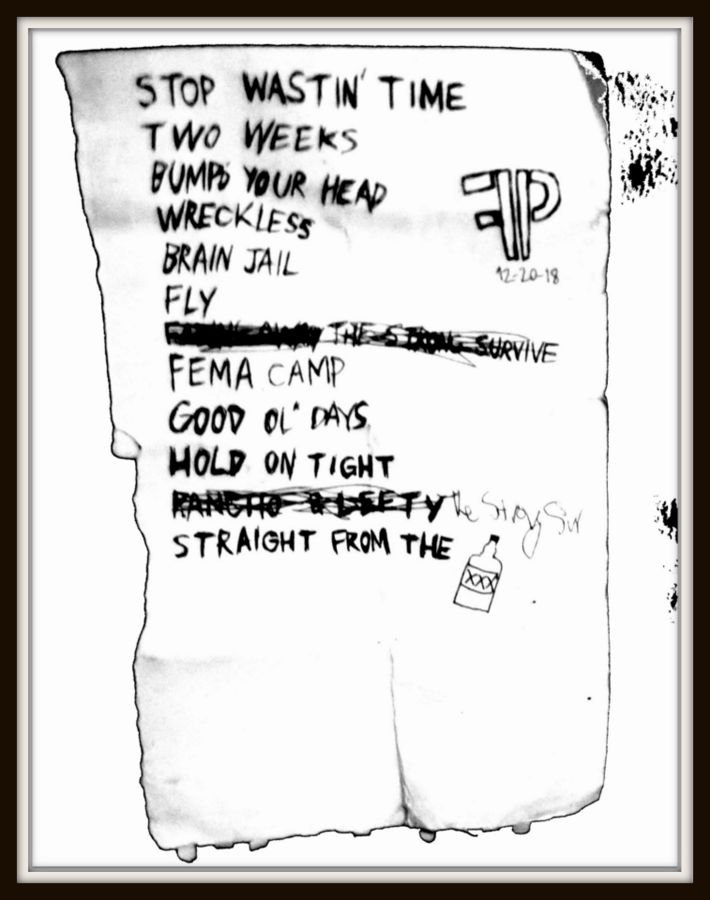 STOP WASTIN' TIME
TWO WEEKS
BUMPD YOUR HEAD
WRECKLESS
FP
12-20-18
BRAIN JAIL
FLY
THE STRONG SURVIVE
FEMA CAMP
GOOD OL' DAYS
HOLD ON TIGHT
PANCHO & LEFTY The Strong Sur
STRAIGHT FROM THE
XXX